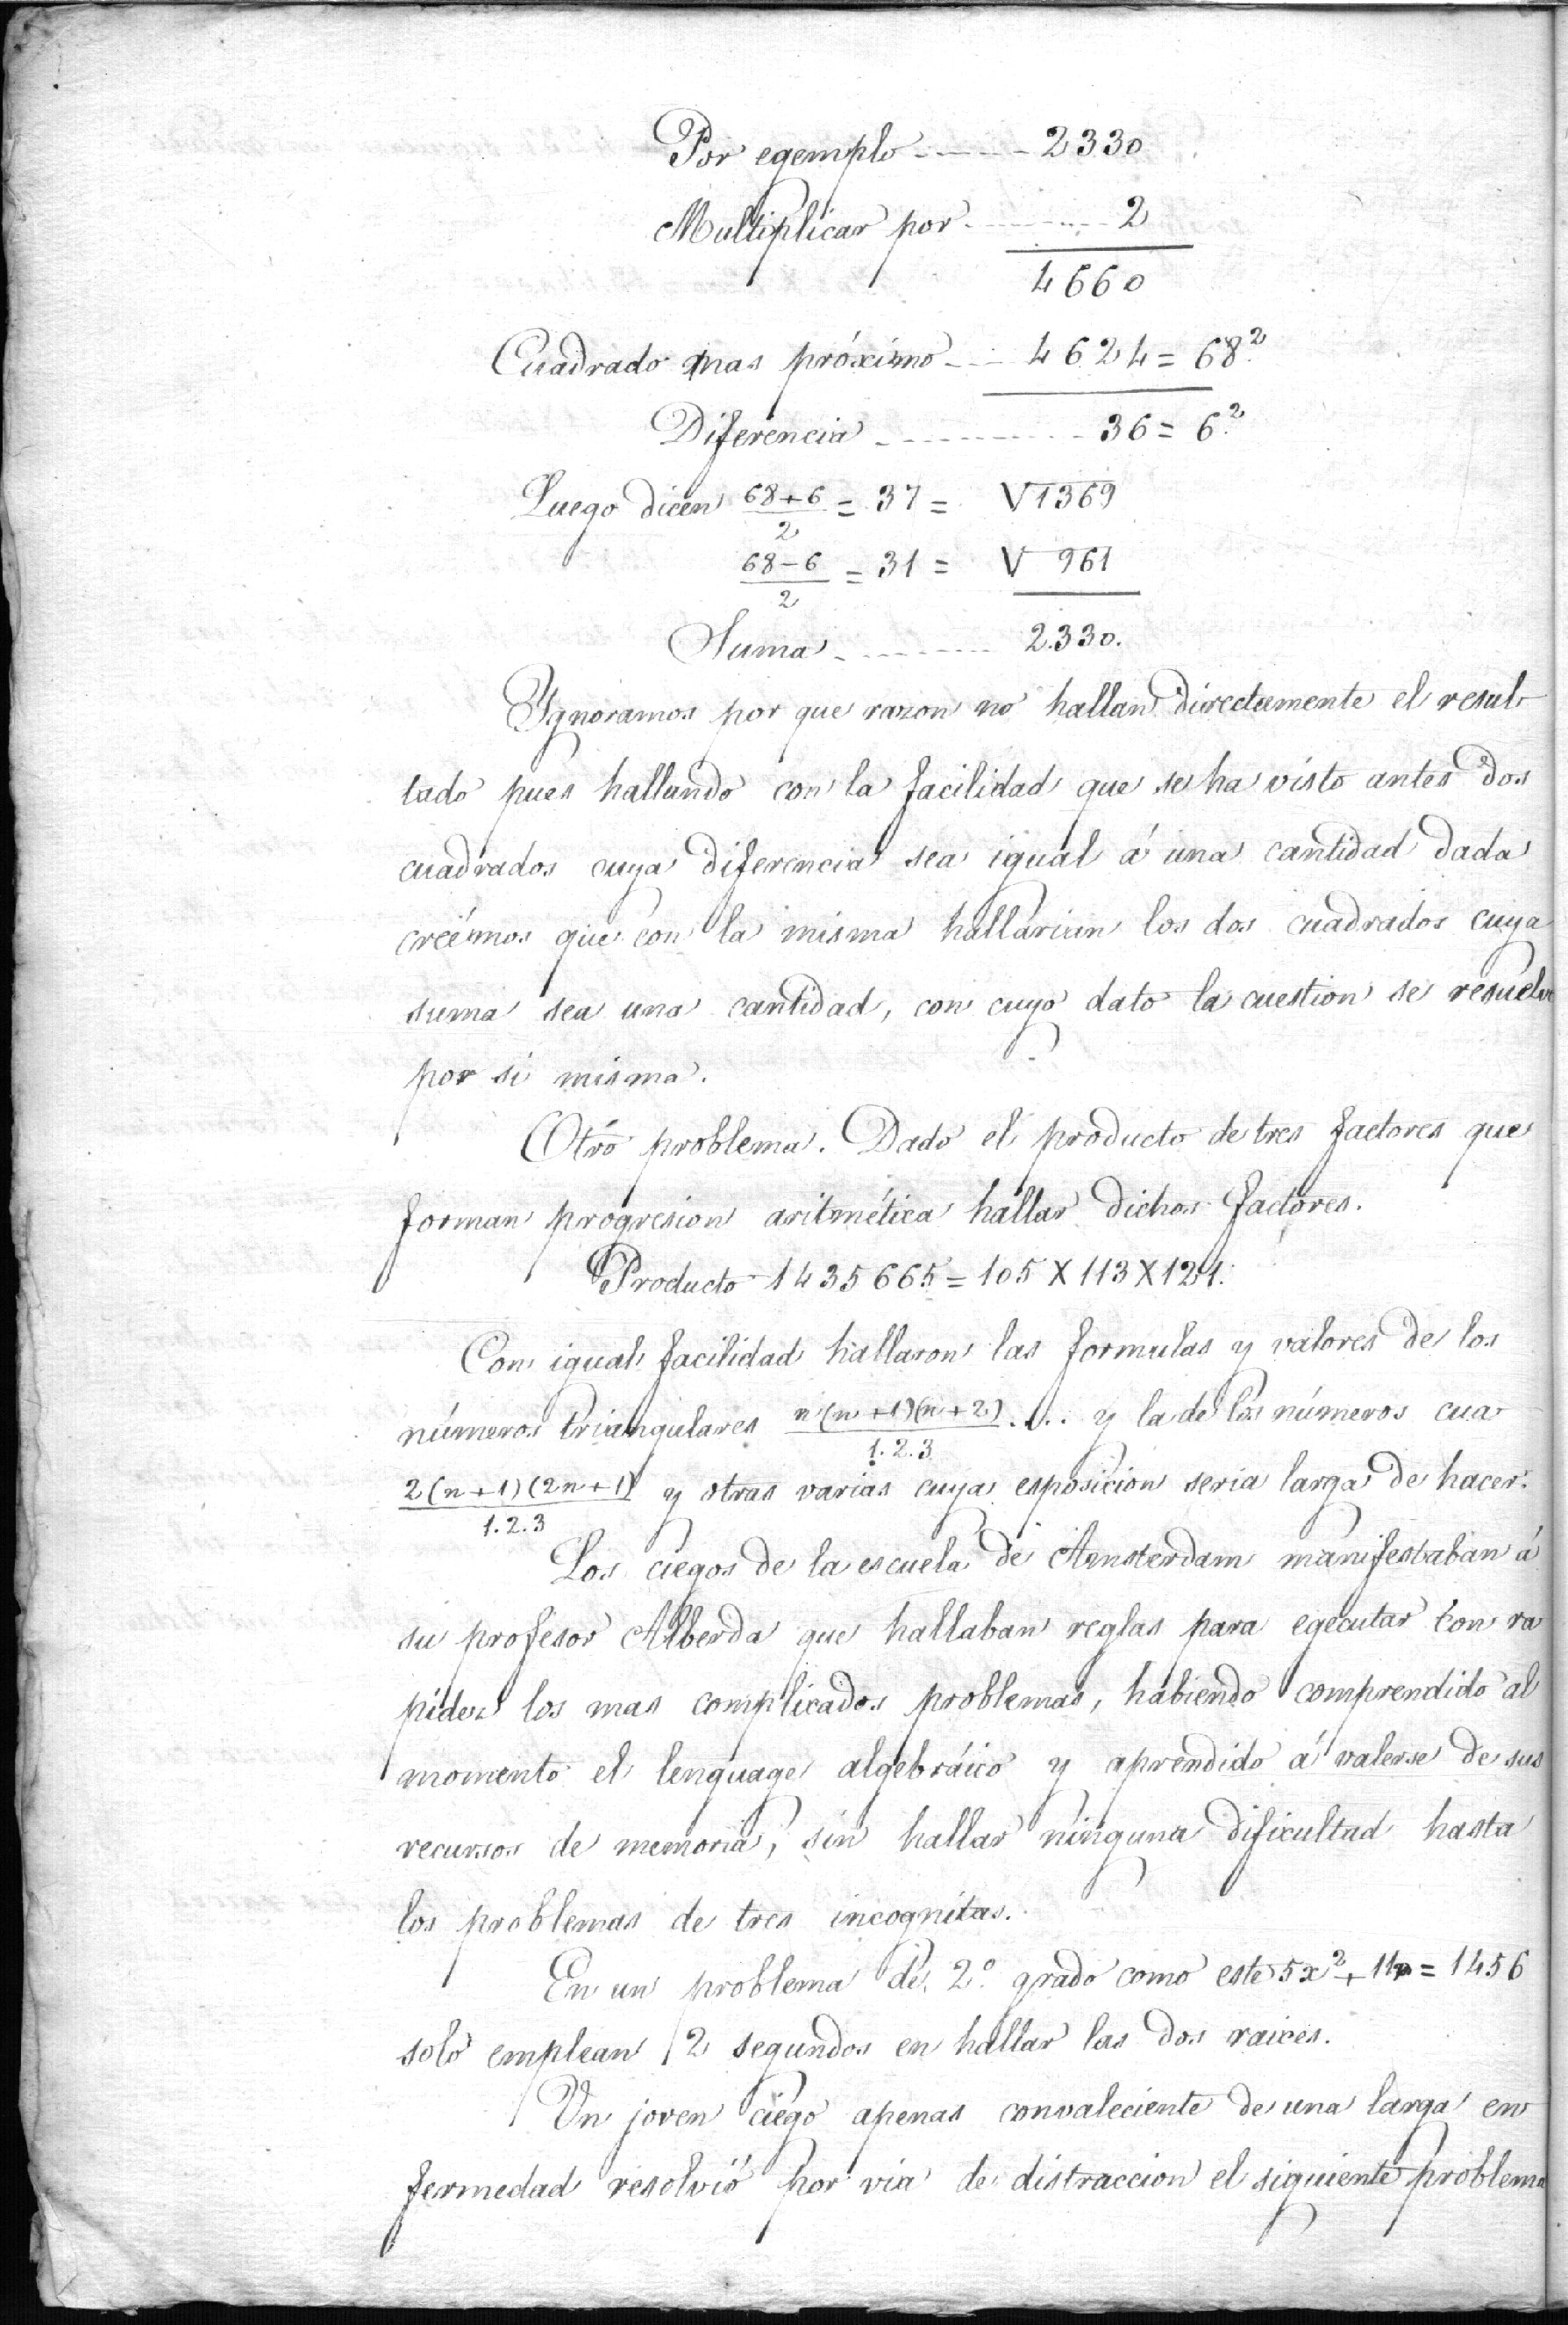 Por egemplo ------ 2330
Multiplicar por ------ 2
4660
Cuadrado mas próximo --- 4624 = 68.²
Diferencia ---------- 36 = 6.²
Luego dicen (68+6)/2 = 37 = √1369
(68-6)/2 = 31 = √ 961
Suma --------- 2.330.
Ygnoramos por que razon no hallan directamente el resul-
tado pues hallando con la facilidad que se ha visto antes dos
cuadrados cuya diferencia sea igual á una cantidad dada
creémos que con la misma hallarian los dos cuadrados cuya
suma sea una cantidad, con cuyo dato la cuestion se resuelve
por si misma.
Otro problema. Dado el producto de tres factores que
forman progresion aritmética hallar dichos factores.
Producto 1435665 = 105 X 113 X 121.
Con igual facilidad hallaron las formulas y valores de los
números triangulares n(n+1)(n+2)/1.2.3 .... y la de los números cua
2(n+1)(2n+1)/1.2.3 y otras varias cuya esposicion seria larga de hacer.
Los ciegos de la escuela de Amsterdam manifestaban á
su profesor Alberda que hallaban reglas para egecutar con ra
pidez los mas complicados problemas, habiendo comprendido al
momento el lenguage algebráico y aprendido á valerse de sus
recursos de memoria, sin hallar ninguna dificultad hasta
los problemas de tres incognitas.
En un problema de 2.º grado como este 5x² + 11x = 1456
solo emplean 2 segundos en hallar las dos raices.
Un joven ciego apenas convaleciente de una larga en
fermedad resolvió por via de distraccion el siguiente problema